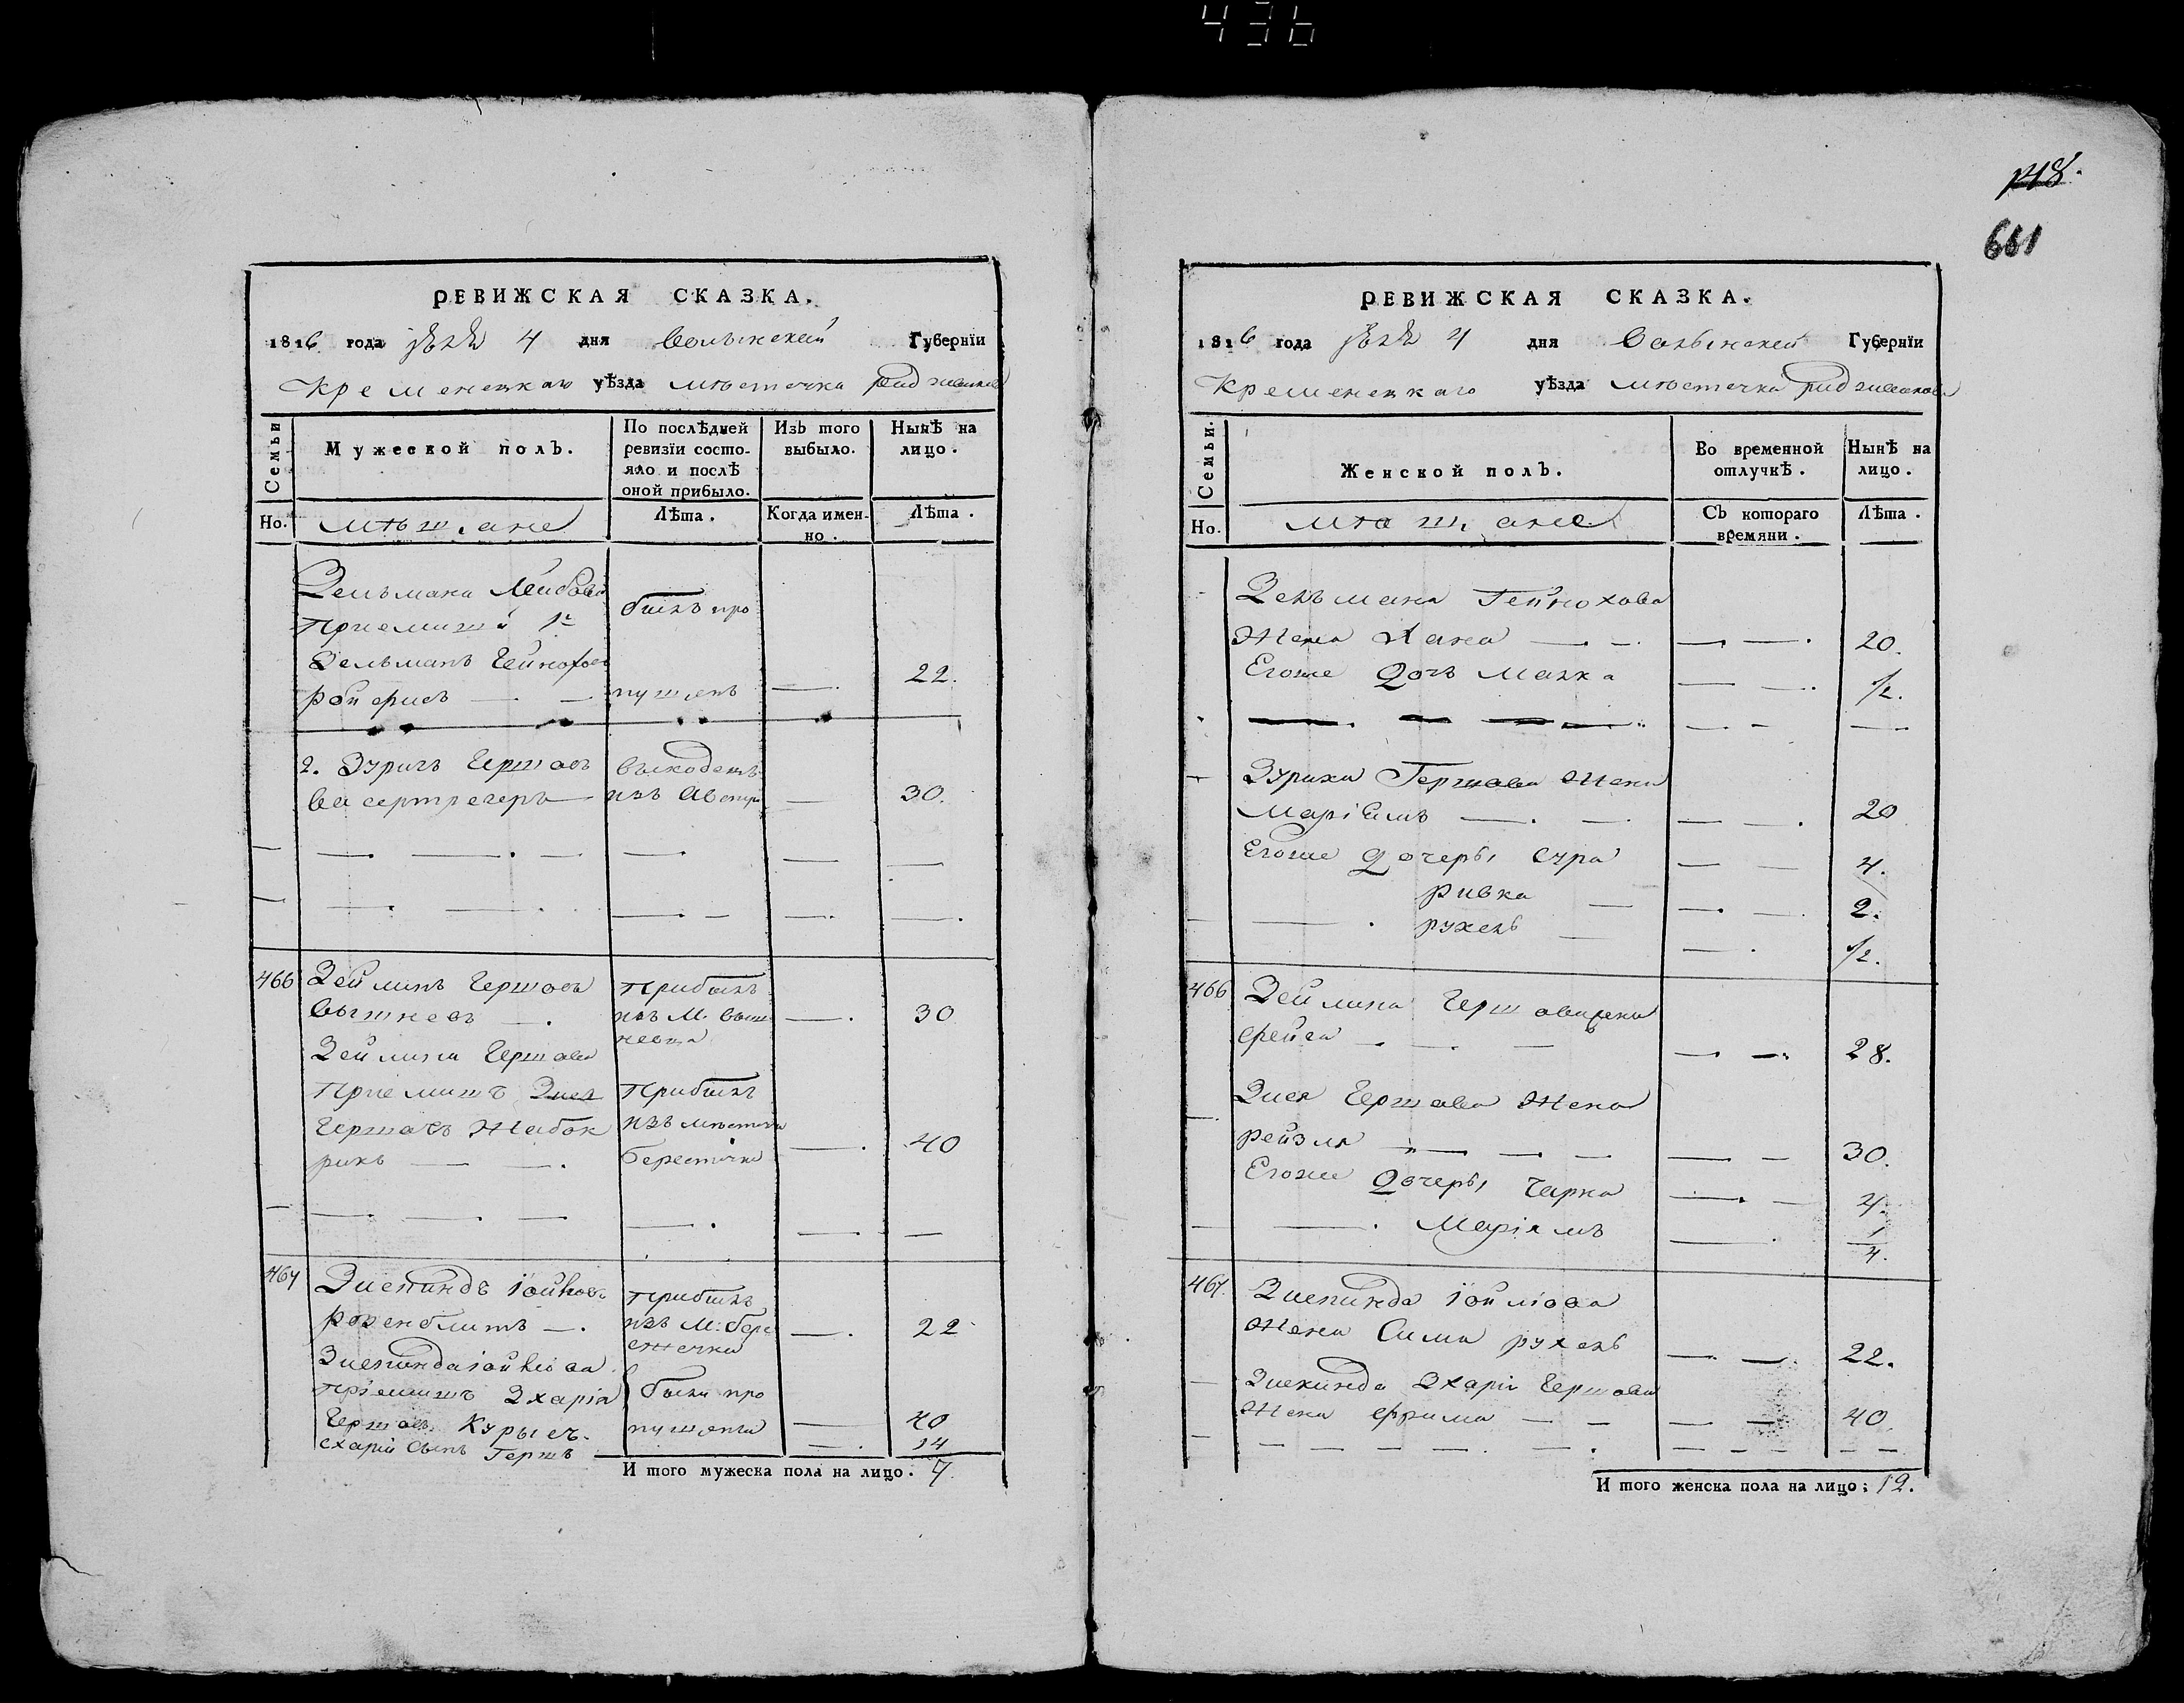 436
718.
661
РЕВИЖСКАЯ СКАЗКА.
1816 года 4 дня Волынской Губернїи
Кременецкаго уѣзда мѣстечка
Семьи
Мужеской полъ.
По послѣдней ревизїи состояло и послѣ оной прибыло.
Изъ того выбыло.
Нынѣ на лицо.
Но.
мѣщане
Лѣта.
Когда именно.
Лѣта.
Зельмана Лейбова
приемишъ 1й
былъ про
Зельманъ Гейнохов
22.
ройерисъ
пущенъ
2. Зурихъ Гершовъ
выходецъ
Васертрегеръ
изъ Австри
30.
466
Зейлинъ Гершовъ
прибылъ
Вишневъ
изъ М. Вишневца
30
Зейлина Гершова
приемишъ
прибылъ
Гершовъ Жабокрикъ
изъ мѣстечка
Берестечка
40
467
Зискиндъ
прибылъ
розенблитъ
изъ М: бере
стечка
22
Зискинда
приемишъ Зхарія
были про
Гершов. Курысъ.
пущены
40
схарїи сынъ Гершъ
14
И того мужеска пола на лицо. 7.
РЕВИЖСКАЯ СКАЗКА.
1816 года 4 дня Волынской Губернїи
Кременецкаго уѣзда мѣстечка
Семьи.
Женской полъ.
Во временной отлучкѣ.
Нынѣ на лицо.
Но.
мѣщане
Съ котораго времяни.
Лѣта.
Зельмана Гейнохова
Жена Хана
20.
Егоже Дочь Малка
1/2.
Зуриха Гершова Жена
Марїямъ
20
Егоже Дочеры Сура
4.
ривка
2.
рухель
1/2.
466
Зейлина Гершова жена
фейга
28.
Гершова Жена
рейзля
30.
Егоже Дочеры Чарна
4.
Марїямъ
1/4.
467.
Зискинда
Жена Сима рухель
22.
Зискинда Зхарїи Гершова
Жена фрима
40.
И того женска пола на лицо: 12.